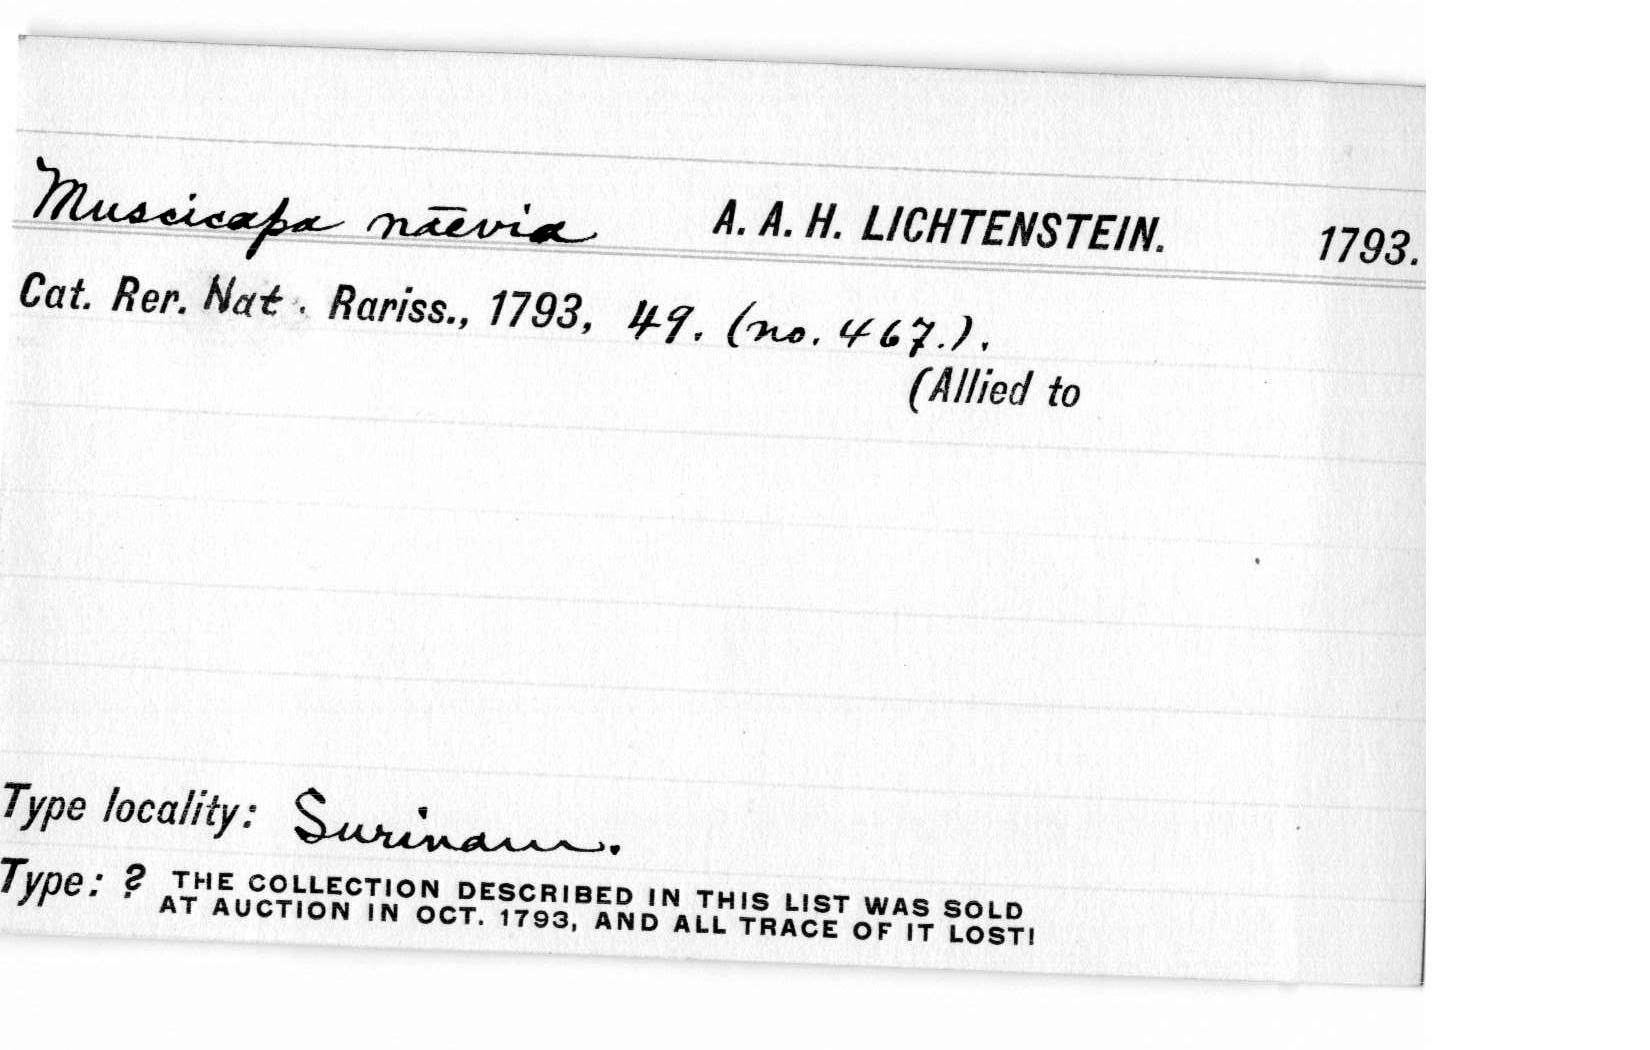 Muscicapa nāevia A. A. H. LICHTENSTEIN. 1793.
Cat. Rer. Nat. Rariss., 1793, 49. (no. 467.).
(Allied to
Type locality: Surinam.
Type: ? THE COLLECTION DESCRIBED IN THIS LIST WAS SOLD
AT AUCTION IN OCT. 1793, AND ALL TRACE OF IT LOST!